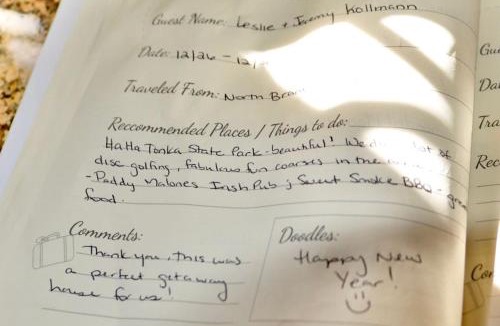 Guest Name: Leslie + Jeremy Kollmann
Date: 12/26 - 12/
Traveled From: North
Recommended Places / Things to do:
HaHa Tonka State Park - beautiful! We lot of
disc golfing, fabulous fun courses in the
- Paddy Malones Irish Pub ; Sweet Smoke BBQ -
food.
Comments:
Thank you, this was
a perfect getaway
house for us!
Doodles:
Happy New
Year!
Gu
Da
Tra
Rec
Co